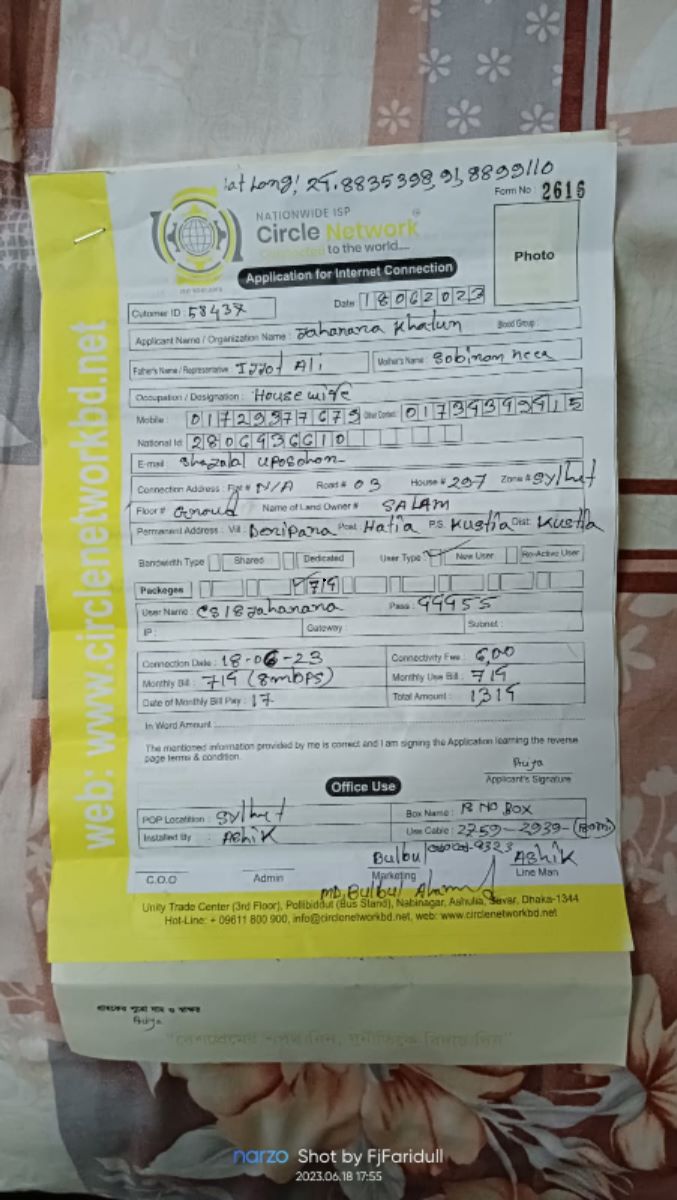 Lat Long: 24.8835398, 91.8899110
Form No 2616
NATIONWIDE ISP
Circle Network
Connected to the world....
Application for Internet Connection
Photo
Cutomer ID: 58437
Date 18062023
Applicant Name / Organization Name : Jahanara Khatun Blood Group :
Father's Name / Representative Ijjot Ali Mother's Name : Sobiranneca
Occupation / Designation : Housewife
Mobile : 01729377679 Other Contact 01734394915
National Id 2806436610
E-mail Shazalal Uposohon
Connection Address : Flat # N/A Road # 03 House # 297 Zone # Sylhet
Floor # Name of Land Owner # SALAM
Permanent Address : Vill : Post : Hatia P.S Kustia Dist Kustia
Bandwidth Type Shared Dedicated User Type New User Re-Active User
Packages 714
User Name : cs18Jahanara Pass : 99955
IP : Gateway : Subnet :
Connection Date : 18-06-23 Connectivity Fee : 600
Monthly Bill : 714 (8mbps) Monthly Use Bill : 714
Date of Monthly Bill Pay : 17 Total Amount : 1314
In Word Amount
The mentioned information provided by me is correct and I am signing the Application learning the reverse
page terms & condition.
Priya
Applicant's Signature
Office Use
POP Locatition : Sylhet Box Name : R NO BOX
Installed By : Ashik Use Cable : 2759-2939-
Bulbul Ashik
C.O.O Admin Marketing Line Man
MD. Bulbul
Unity Trade Center (3rd Floor), Pollibiddut (Bus Stand), Nabinagar, Ashulia, Savar, Dhaka-1344
Hot-Line: + 09611 800 900, info@circlenetworkbd.net, web: www.circlenetworkbd.net
web: www.circlenetworkbd.net
গ্রাহকের পুরো নাম ও স্বাক্ষর
Priya
narzo Shot by FjFaridull
2023.06.18 17:55